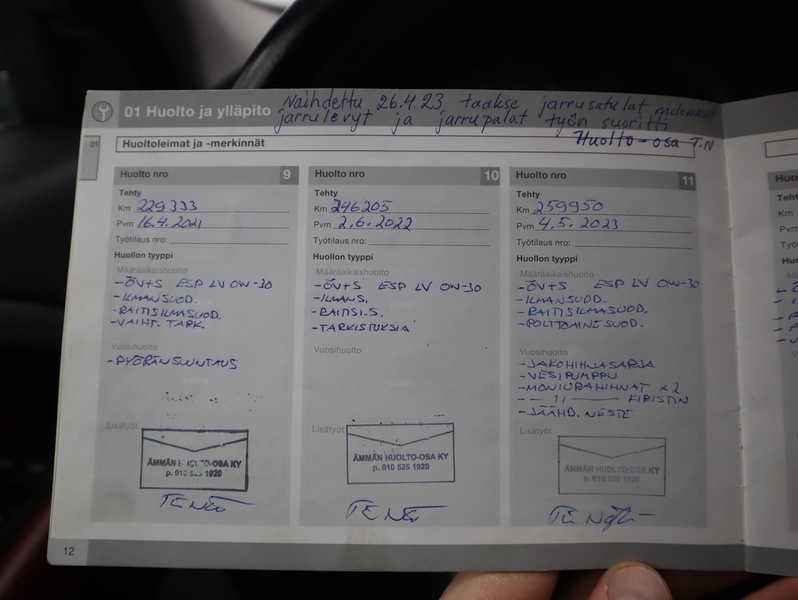 01 Huolto ja ylläpito
Vaihdettu 26.4.23 taakse jarrusatulat molemmat
jarrulevyt ja jarrupalat työn suoritti
Huolto-osa T.N
01
Huoltoleimat ja -merkinnät
Huolto nro 9
Tehty
Km 229333
Pvm 16.4.2021
Työtilaus nro:
Huollon tyyppi
Määräaikaishuolto
-ÖV+S ESP LV 0W-30
-ILMANSUOD.
-RAITISILMASUOD.
-VAIHT. TARK.
Vuosihuolto
-PYÖRÄNSUUNTAUS
Lisätyöt
ÄMMÄN HUOLTO-OSA KY
p. 010 525 1920
Huolto nro 10
Tehty
Km 246205
Pvm 2.6.2022
Työtilaus nro:
Huollon tyyppi
Määräaikaishuolto
-ÖV+S ESP LV 0W-30
-ILMANS.
-RAITIS.S.
-TARKISTUKSIA
Vuosihuolto
Lisätyöt
ÄMMÄN HUOLTO-OSA KY
p. 010 525 1920
Huolto nro 11
Tehty
Km 259950
Pvm 4.5.2023
Työtilaus nro:
Huollon tyyppi
Määräaikaishuolto
-ÖV+S ESP LV 0W-30
-ILMANSUOD.
-RAITISILMASUOD.
-POLTTOAINESUOD.
Vuosihuolto
-JAKOHIHNASARJA
-VESIPUMPPU
-MONIURAHIHNAT x2
- -11- KIRISTIN
-JÄÄHD. NESTE
Lisätyöt
ÄMMÄN HUOLTO-OSA KY
p. 010 525 1920
12